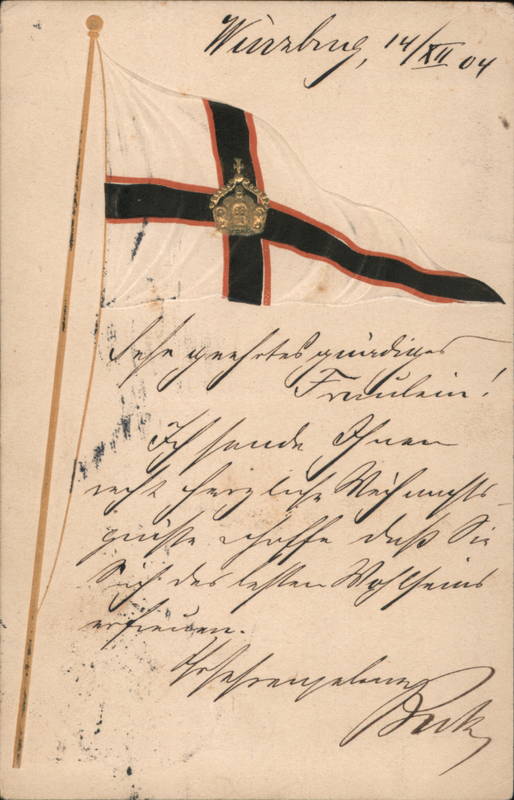 Würzburg, 14/XII 04
Sehr geehrtes gnädiges
Fräulein!
Ich sende Ihnen
recht herzliche Weihnachts-
grüße u. hoffe daß Sie
Sich des besten Wohlseins
erfreuen.
Ihr sehr ergebener